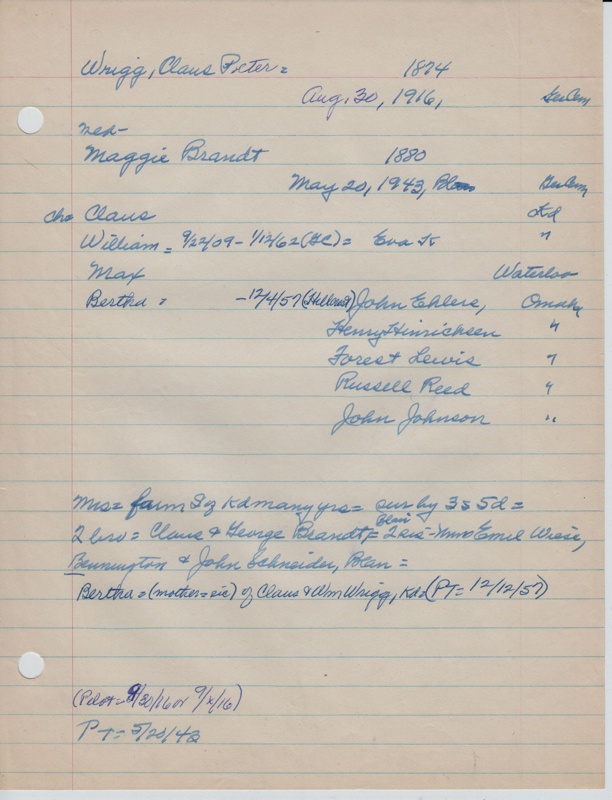 Wrigg, Claus Peter = 1874
Aug. 30, 1916, Ger Cem
ned-
Maggie Brandt 1880
May 20, 1943, Blair Ger Cem
ch= Claus Kd
William = 9/22/09 - 1/12/62 (GC) = Eva K "
Max Waterloo
Bertha = -12/4/57 (Hillcrest) John Ehlers, Omaha
Henry Hinrichsen "
Forest Lewis "
Russell Reed "
John Johnson "
Mrs= farm S of Kd many yrs = sur by 3s 5d =
2 bro = Claus & George Brandt, Blair = 2 sis - Mmes Emil Wiese,
Bennington & John Schneider, Blair =
Bertha = (mother = sic) of Claus & Wm Wrigg, Kd = (PT= 12/12/57)
(Pilot = 8/30/16 or 9/ /16)
PT= 5/20/43